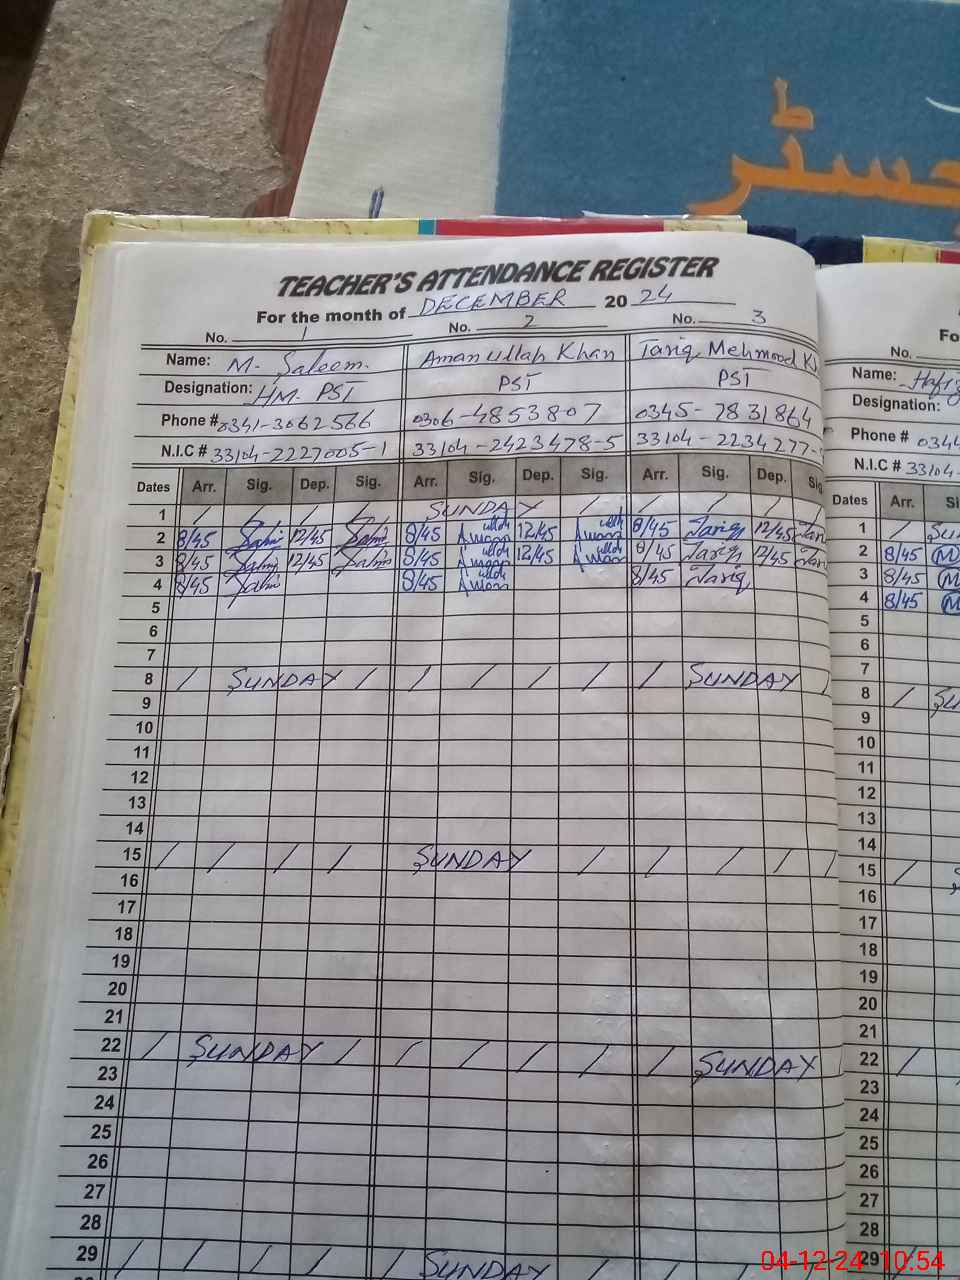 رجسٹر
TEACHER'S ATTENDANCE REGISTER
For the month of DECEMBER 20 24
No. 1 No. 2 No. 3
Name: M. Saleem. Aman ullah Khan Tariq Mehmood
Designation: HM. PST PST PST
Phone # 0341-3062566 0306-4853807 0345-7831864
N.I.C # 33104-2227005-1 33104-2423478-5 33104-2234277-
Dates Arr. Sig. Dep. Sig. Arr. Sig. Dep. Sig. Arr. Sig. Dep. Sig
1 / / / / SUNDAY / / / / /
2 8/45 Salim 12/45 Salim 8/45 Aman ullah 12/45 Aman ullah 8/45 Tariq 12/45 Tari
3 8/45 Salim 12/45 Salim 8/45 Aman ullah 12/45 Aman ullah 8/45 Tariq 12/45 Tari
4 8/45 Salim 8/45 Aman ullah 8/45 Tariq
5
6
7
8 / SUNDAY / / / / / / / SUNDAY /
9
10
11
12
13
14
15 / / / / SUNDAY / / / / /
16
17
18
19
20
21
22 / SUNDAY / / / / / / / SUNDAY
23
24
25
26
27
28
29 / / / / / SUNDAY
Fo
No.
Name:
Designation:
Phone # 034
N.I.C # 33104-
Dates Arr. Si
1 / SU
2 8/45 M
3 8/45 M
4 8/45 M
5
6
7
8 / SU
9
10
11
12
13
14
15 /
16
17
18
19
20
21
22 /
23
24
25
26
27
28
29
04-12-24 10:54